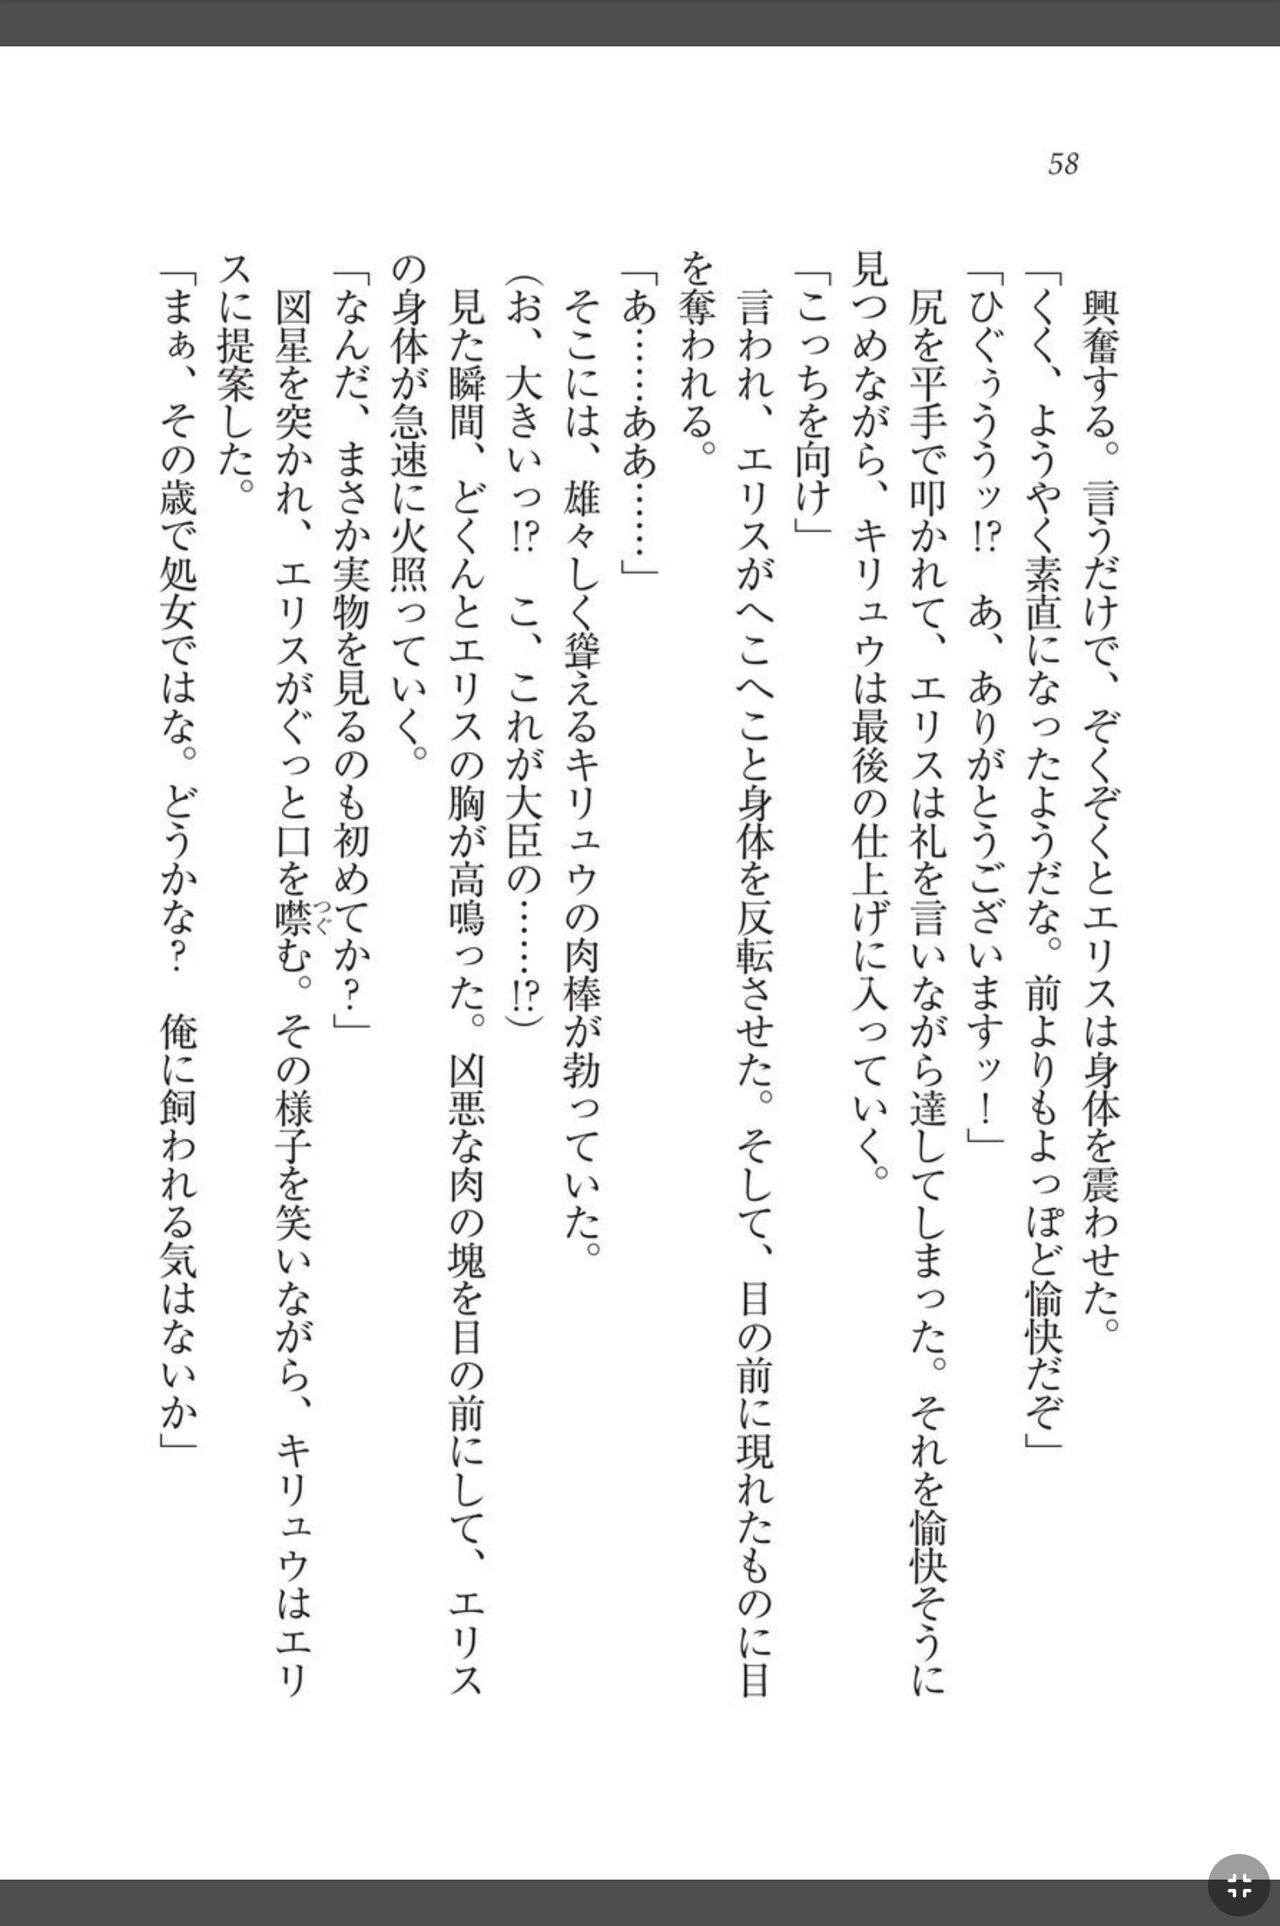 58
興奮する。言うだけで、ぞくぞくとエリスは身体を震わせた。
「くく、ようやく素直になったようだな。前よりもよっぽど愉快だぞ」
「ひぐぅううッ!?　あ、ありがとうございますッ！」
尻を平手で叩かれて、エリスは礼を言いながら達してしまった。それを愉快そうに
見つめながら、キリュウは最後の仕上げに入っていく。
「こっちを向け」
言われ、エリスがへこへこと身体を反転させた。そして、目の前に現れたものに目
を奪われる。
「あ……ああ……」
そこには、雄々しく聳えるキリュウの肉棒が勃っていた。
（お、大きいっ!?　こ、これが大臣の……!?）
見た瞬間、どくんとエリスの胸が高鳴った。凶悪な肉の塊を目の前にして、エリス
の身体が急速に火照っていく。
「なんだ、まさか実物を見るのも初めてか？」
図星を突かれ、エリスがぐっと口を噤む。その様子を笑いながら、キリュウはエリ
つぐ
スに提案した。
「まぁ、その歳で処女ではな。どうかな？　俺に飼われる気はないか」